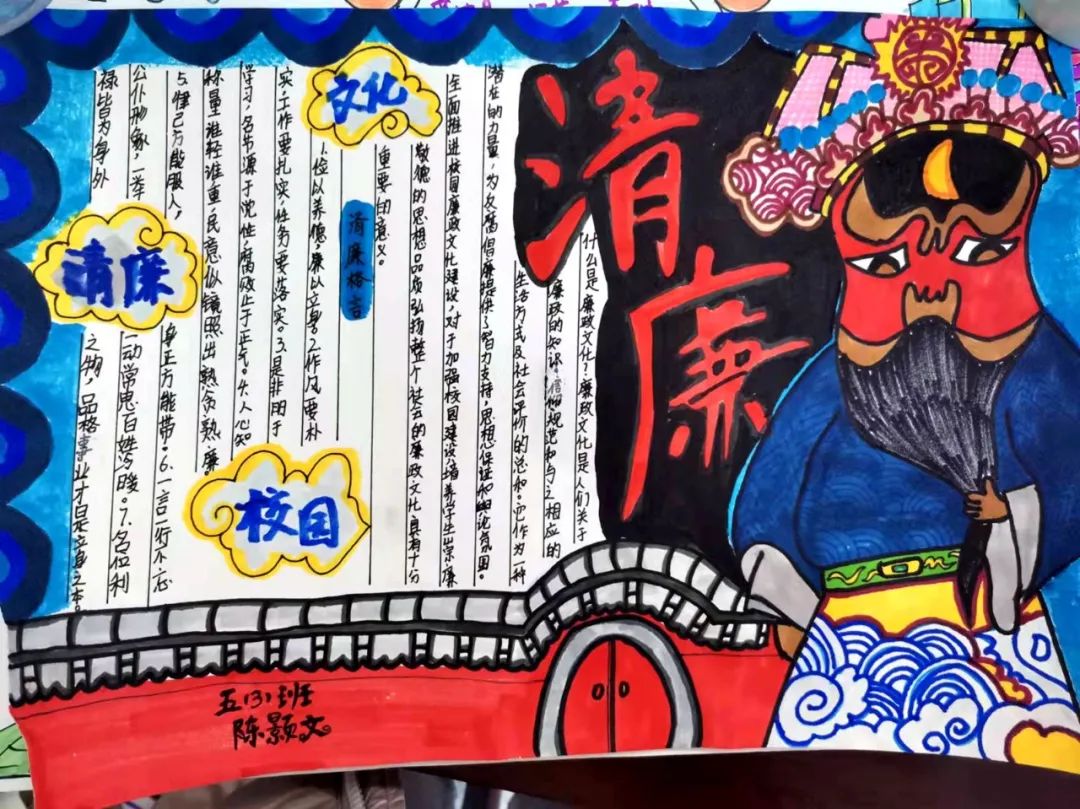 清廉
什么是廉政文化?廉政文化是人们关于
廉政的知识、信仰规范和与之相应的
生活方式及社会评价的总和。它作为一种
潜在的力量,为反腐倡廉提供了智力支持,思想保证和舆论氛围。
全面推进校园廉政文化建设,对于加强校园建设,培养学生崇廉
敬德的思想品质弘扬整个社会的廉政文化具有十分
重要的意义。
文化
清廉格言
1.俭以养德,廉以立身。2.作风要朴
实,工作要扎实,任务要落实。3.是非明于
学习,名节源于忱性,腐败止于正气。4.人心知
称量谁轻谁重,民意似镜照出熟贪熟廉
校园
5.律己方能服人,身正方能带。6.一言一行不忘
公仆形象,一举一动常思百姓冷暖。7.名位利
清廉
禄皆为身外之物,品格事业才是立身之本。
五(3)班
陈颢文